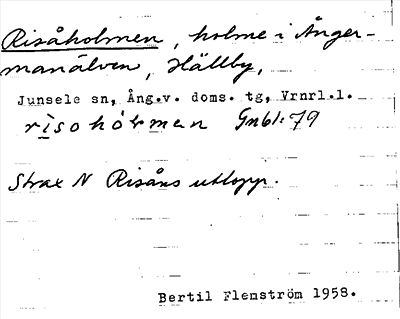 Risåholmen, holme i Ånger-
manälven, Hällby,
Junsele sn, Ång.v. doms. tg, Vrnrl.l.
risohòrman Gnbl:79
Strax N Risåns utlopp.
Bertil Flenström 1958.